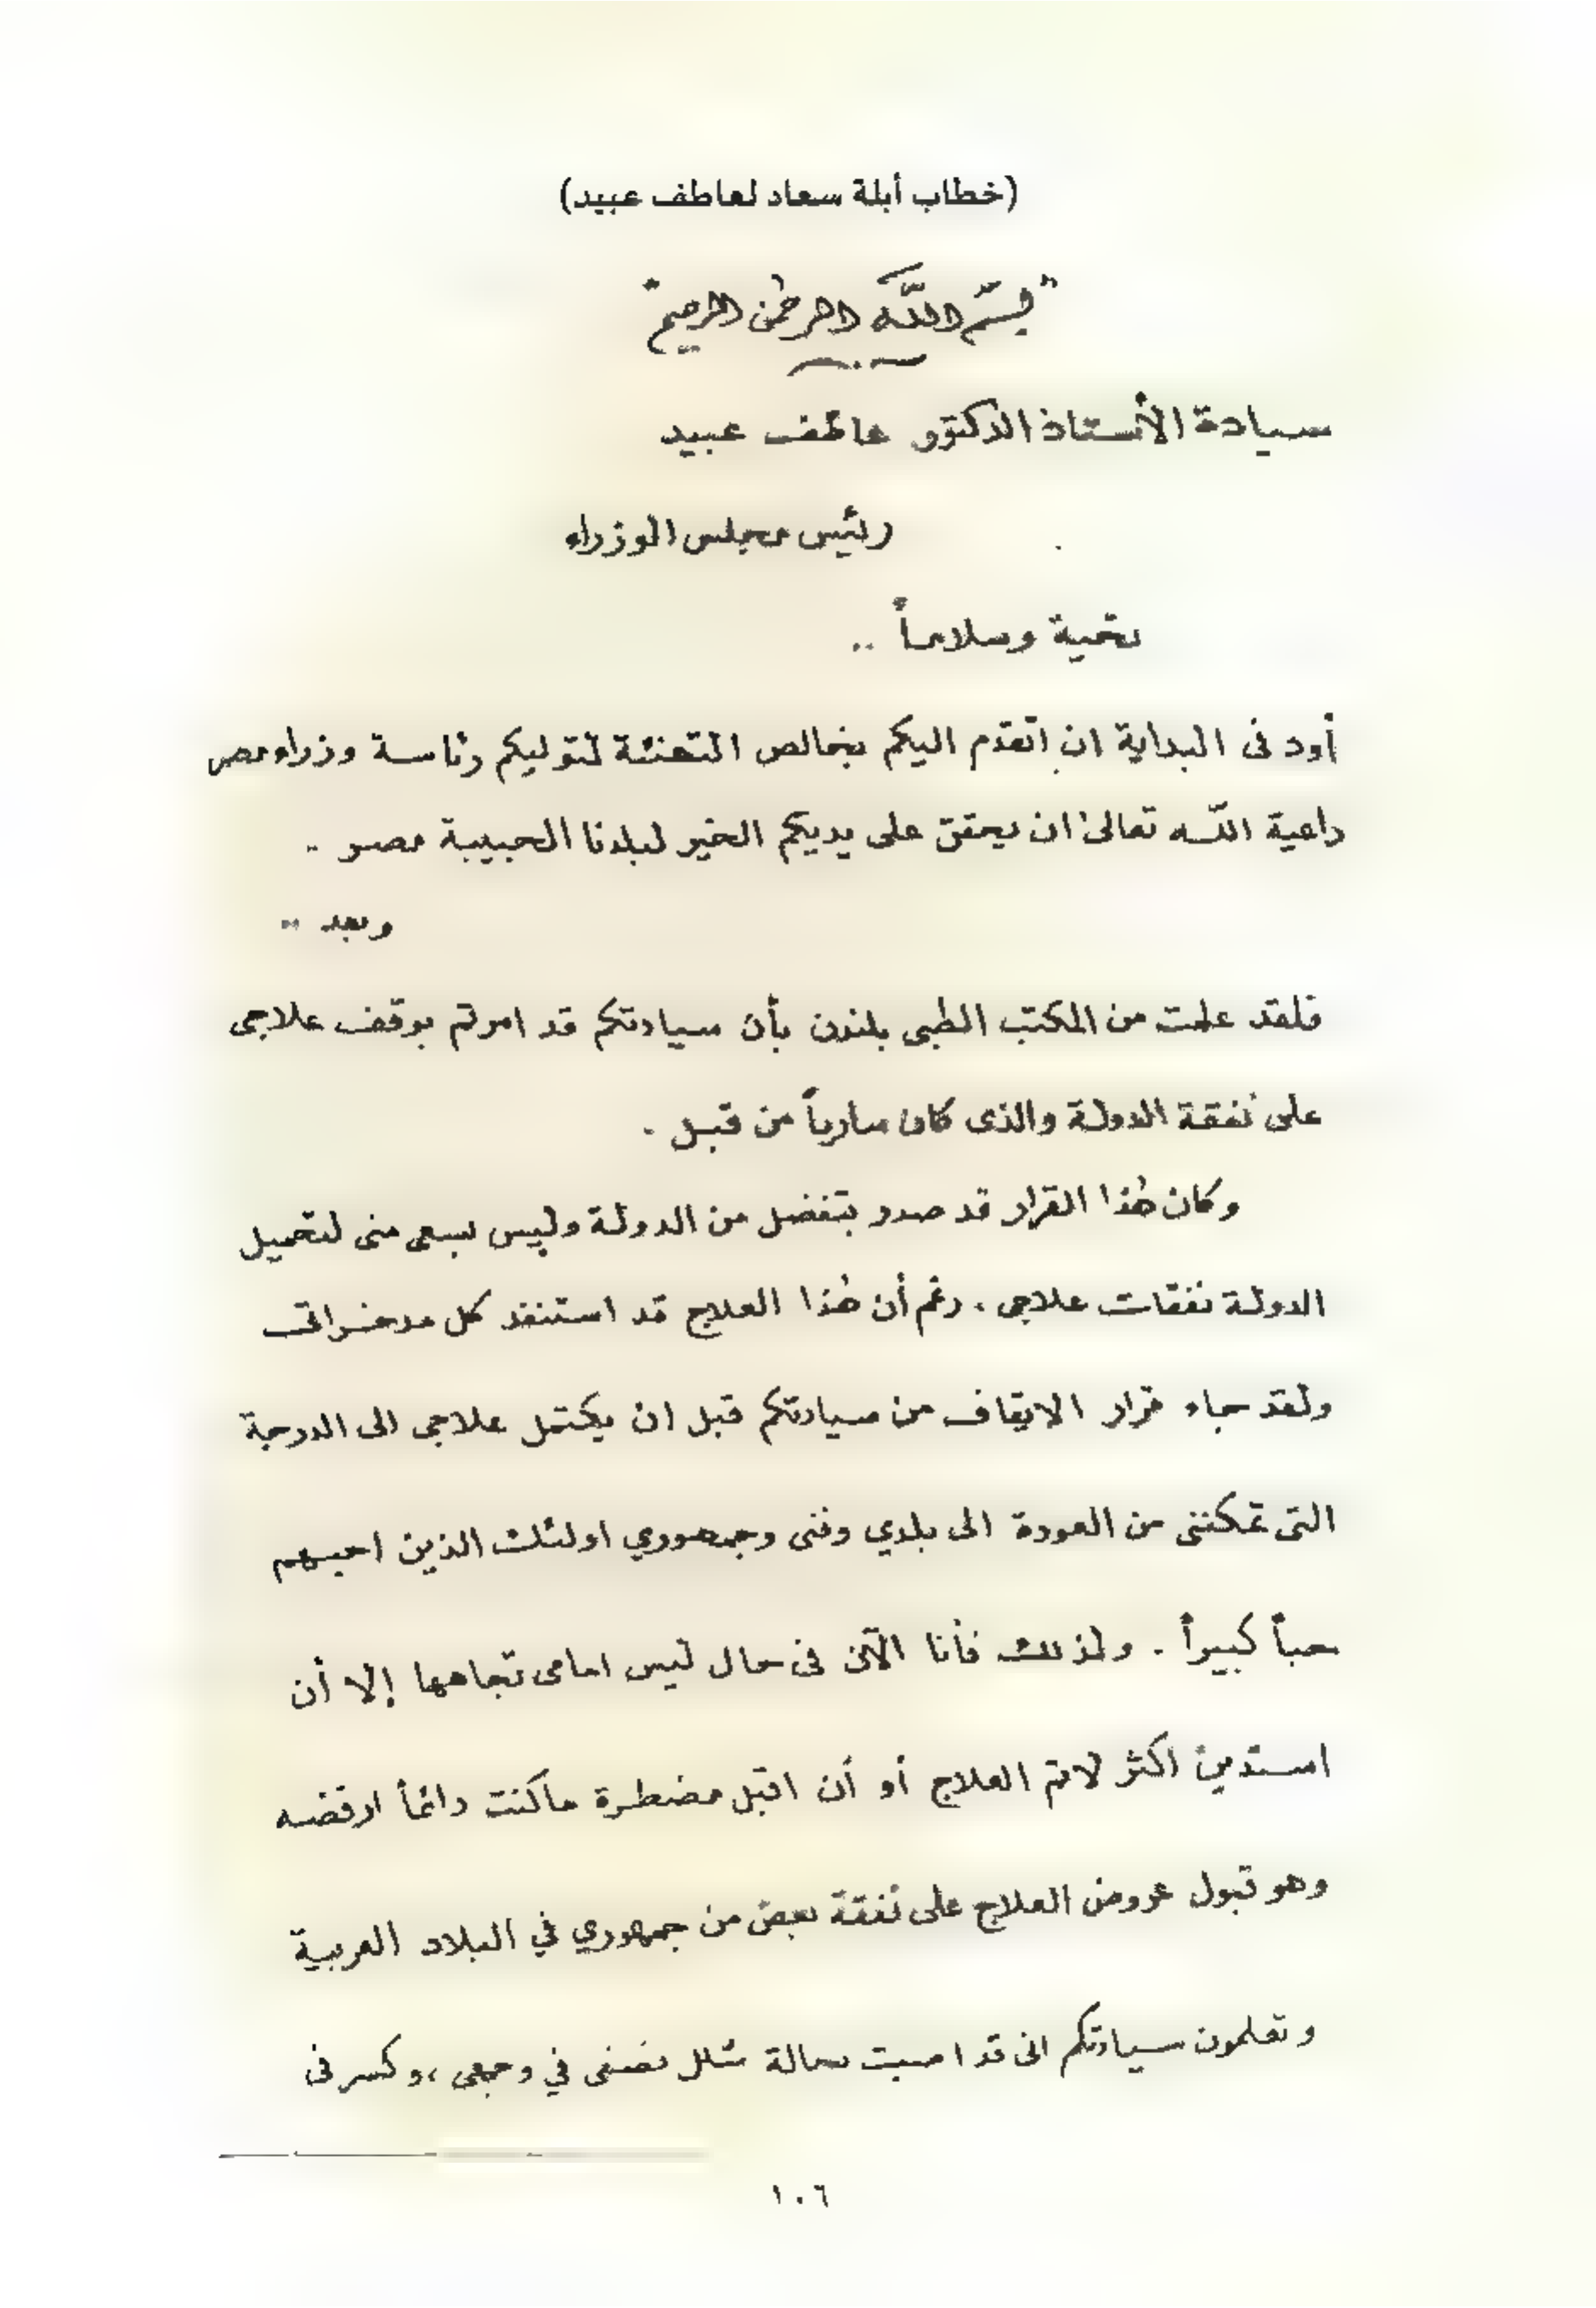 (خطاب أبلة سعاد لعاطف عبيد)
"بسم اللّه الرحمن الرحيم"
سيادة الأستاذ الدكتور عاطف عبيد
رئيس مجلس الوزراء
تحية وسلاماً ..
أود فى البداية ان اتقدم اليكم بخالص التهنئة لتوليكم رئاسة وزراء مصر
داعية اللّه تعالى ان يحقق على يديكم الخير لبلدنا الحبيبة مصر .
وبعد ..
فلقد علمت من المكتب الطبى بلندن بأن سيادتكم قد امرتم بوقف علاجى
على نفقة الدولة والذى كان سارياً من قبل .
وكان هذا القرار قد صدر بتفضل من الدولة وليس بسعى منى لتحميل
الدولة نفقات علاجى . رغم أن هذا العلاج قد استنفد كل مدخراتى
ولقد جاء قرار الايقاف من سيادتكم قبل ان يكتمل علاجى الى الدرجة
التى تمكننى من العودة الى بلدي وفنى وجمهوري اولئك الذين احبهم
حباً كبيراً . ولذلك فأنا الآن فى حال ليس امامى تجاهها إلا أن
استدين اكثر لاتم العلاج أو أن اقبل مضطرة ماكنت دائماً ارفضه
وهو قبول عروض العلاج على نفقة بعض من جمهوري في البلاد العربية
وتعلمون سيادتكم انى قد اصبت بحالة شلل نصفى في وجهى ، وكسر فى
١٠٦